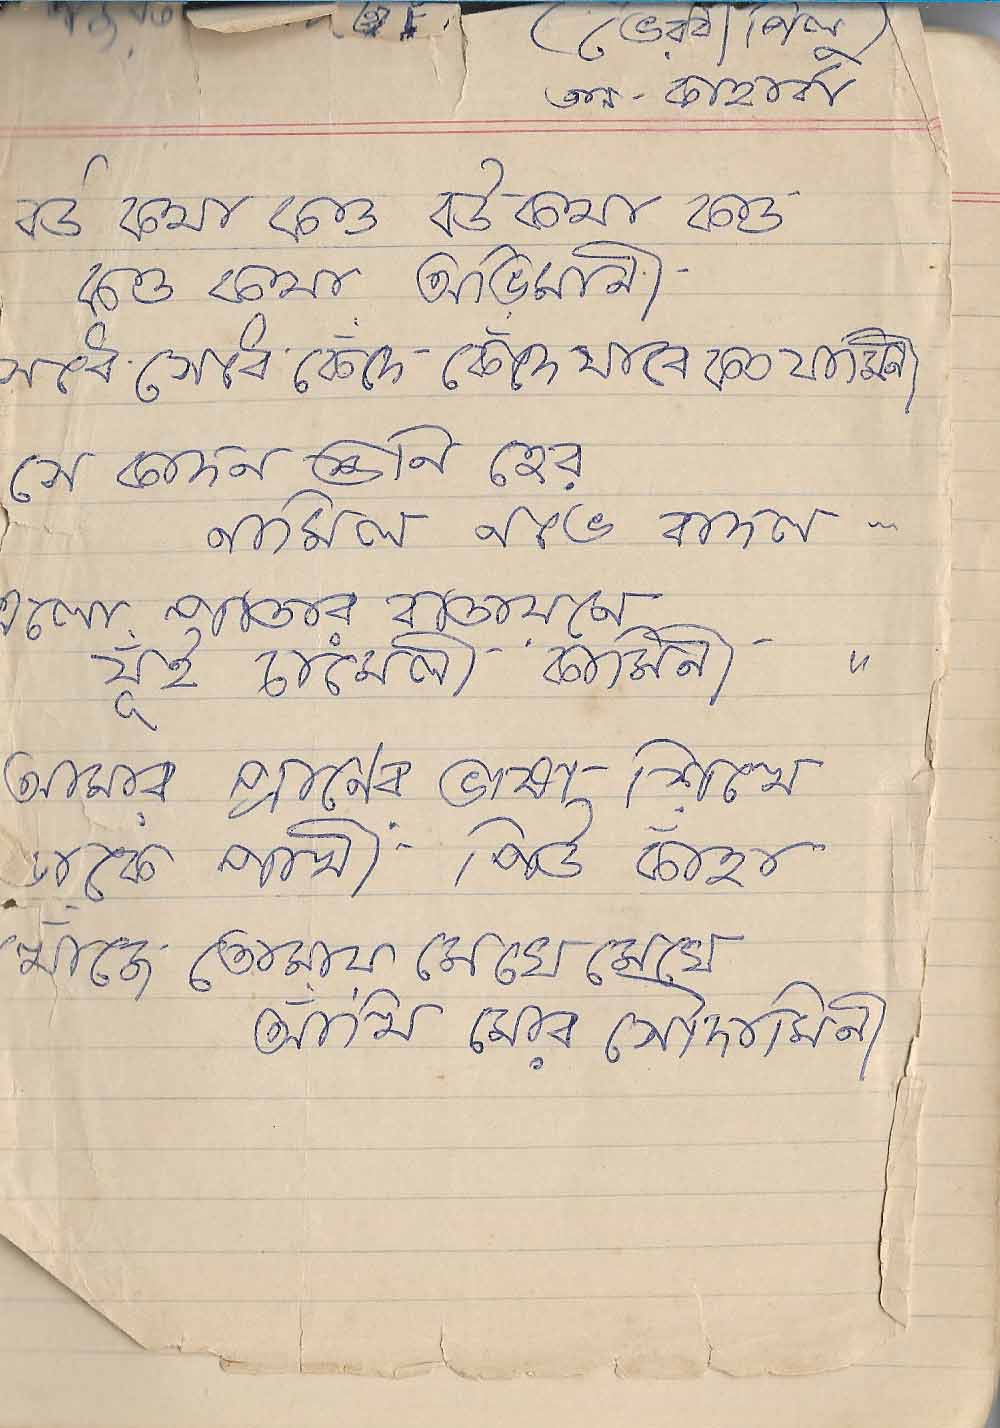 (ভৈরবী পিলু)
তাল - কাহার্বা
বউ কথা কও বউ কথা কও
কও কথা অভিমানী
সেধে সেধে কেঁদে কেঁদে যাবে কত যামিনী
সে কাদন শুনি হের
নামিল নভে বাদল "
এলো পাতার বাতায়নে
যুঁই চামেলী কামিনী "
আমার প্রাণের ভাষা শিখে
ডাকে পাখী পিউ কাঁহা
খোঁজে তোমায় মেঘে মেঘে
আঁখি মোর সৌদামিনী